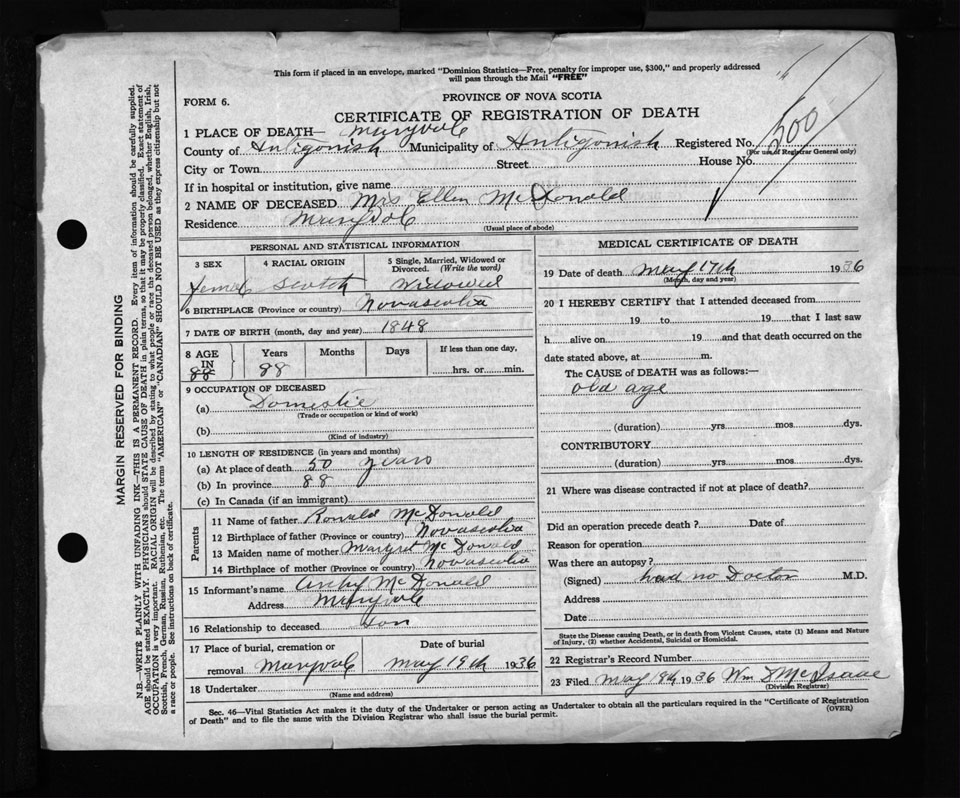 This form if placed in an envelope, marked "Dominion Statistics—Free, penalty for improper use, $300," and properly addressed
will pass through the Mail "FREE"
FORM 6.
PROVINCE OF NOVA SCOTIA
CERTIFICATE OF REGISTRATION OF DEATH
500
1 PLACE OF DEATH— Maryvale
County of Antigonish Municipality of Antigonish Registered No.
(For use of Registrar General only)
City or Town Street House No.
If in hospital or institution, give name
2 NAME OF DECEASED Mrs Ellen McDonald
Residence Maryvale
(Usual place of abode)
PERSONAL AND STATISTICAL INFORMATION
3 SEX 4 RACIAL ORIGIN 5 Single, Married, Widowed or Divorced. (Write the word)
Femal Scotch Widowed
6 BIRTHPLACE (Province or country) Novascotia
7 DATE OF BIRTH (month, day and year) 1848
8 AGE IN 88 Years 88 Months Days If less than one day, hrs. or min.
9 OCCUPATION OF DECEASED
(a) Domestic
(Trade or occupation or kind of work)
(b)
(Kind of industry)
10 LENGTH OF RESIDENCE (in years and months)
(a) At place of death 50 years
(b) In province 88
(c) In Canada (if an immigrant)
Parents
11 Name of father Ronald McDonald
12 Birthplace of father (Province or country) Novascotia
13 Maiden name of mother Margret McDonald
14 Birthplace of mother (Province or country) Novascotia
15 Informant's name McDonald
Address Maryvale
16 Relationship to deceased son
17 Place of burial, cremation or Date of burial
removal Maryvale May 19th 1936
18 Undertaker
(Name and address)
MEDICAL CERTIFICATE OF DEATH
19 Date of death May 17th 1936
(Month, day and year)
20 I HEREBY CERTIFY that I attended deceased from
19 to 19 that I last saw
h alive on 19 and that death occurred on the
date stated above, at m.
The CAUSE of DEATH was as follows:—
old age
(duration) yrs mos dys.
CONTRIBUTORY
(duration) yrs mos dys.
21 Where was disease contracted if not at place of death?
Did an operation precede death ? Date of
Reason for operation
Was there an autopsy?
(Signed) had no Doctor M.D.
Address
Date
State the Disease causing Death, or in death from Violent Causes, state (1) Means and Nature
of Injury, (2) whether Accidental, Suicidal or Homicidal.
22 Registrar's Record Number
23 Filed May 1936 Wm McIsaac
(Division Registrar)
Sec. 46—Vital Statistics Act makes it the duty of the Undertaker or person acting as Undertaker to obtain all the particulars required in the "Certificate of Registration
of Death" and to file the same with the Division Registrar who shall issue the burial permit.
(OVER)
MARGIN RESERVED FOR BINDING
N.B.—WRITE PLAINLY WITH UNFADING INK—THIS IS A PERMANENT RECORD. Every item of information should be carefully supplied.
AGE should be stated EXACTLY. PHYSICIANS should STATE CAUSE OF DEATH in plain terms, so that it may be properly classified. Exact statement of
OCCUPATION is very important. RACIAL ORIGIN will be described by stating to what people or race the deceased person belonged, whether English, Irish,
Scottish, French, German, Russian, Ruthenian, etc. The terms "AMERICAN" or "CANADIAN" SHOULD NOT BE USED as they express citizenship but not
a race or people. See instructions on back of certificate.